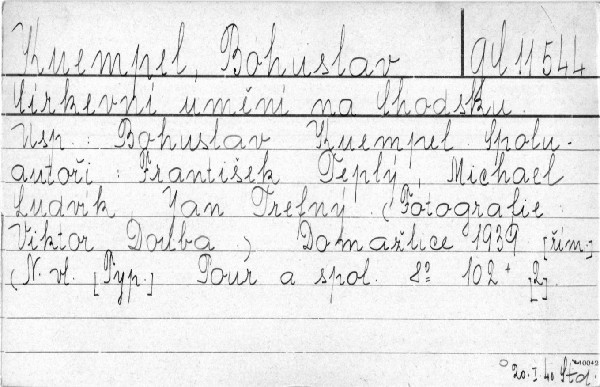 Kuempel, Bohuslav 9d 11544
Církevní umění na Chodsku.
Usp. Bohuslav Kuempel. Spolu-
autoři: František Teplý, Michael
Ludvík Jan Trelný. (Fotografie:
Viktor Dorba) Domažlice 1939 [řím.]
(N. vl. [Typ.] Pour a spol. 8° 102 + [2].
20. I. 40